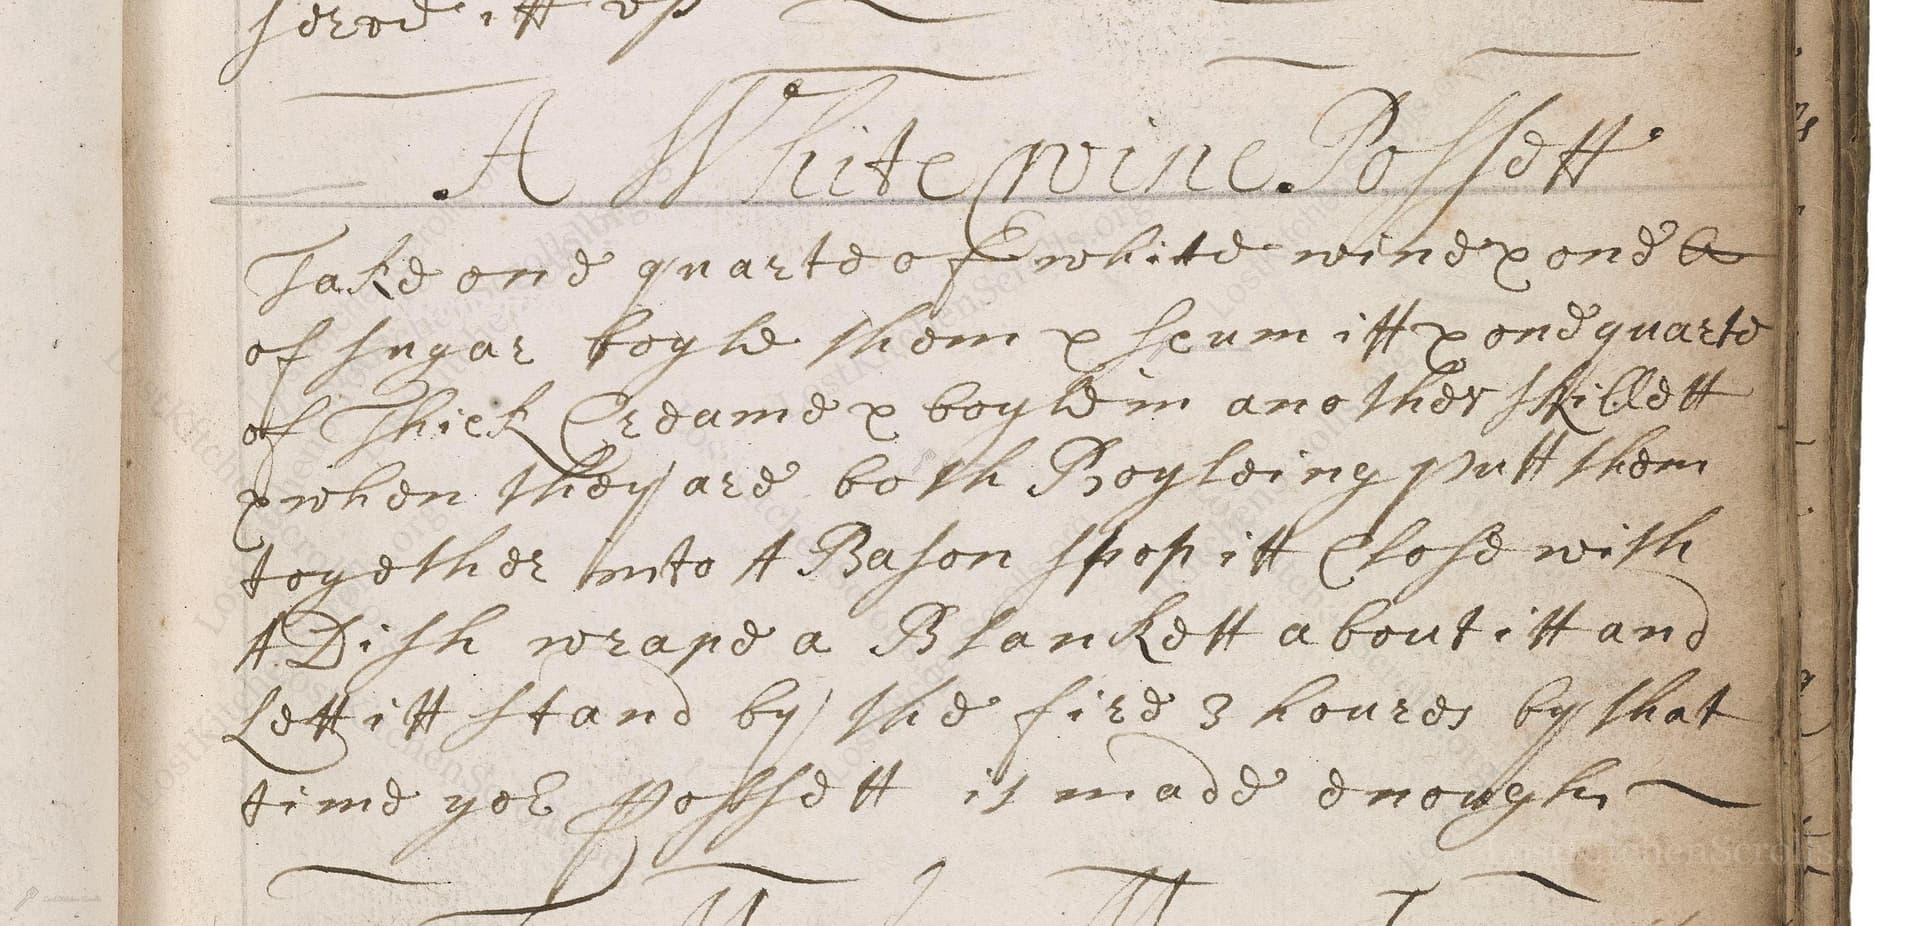 serve itt vp
A White wine Possett
Take one quarte of white wine & one lb
of sugar boyle them & scum itt & one quarte
of Thick Creame & boyle in another skillett
& when they are both Boyleing putt them
together into A Bason stop itt Close with
A Dish wrape a Blankett about itt and
Lett itt stand by the fire 3 houres by that
time yor Possett is made enough